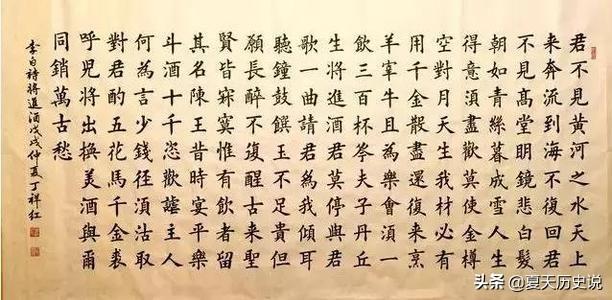 君不見黃河之水天上
来奔流到海不復回君
不見高堂明鏡悲白髮
朝如青絲暮成雪人生
得意須盡歡莫使金樽
空對月天生我材必有
用千金散盡還復来烹
羊宰牛且為樂會須一
飲三百杯岑夫子丹丘
生將進酒君莫停與君
歌一曲請君為我傾耳
聽鐘鼓饌玉不足貴但
願長醉不復醒古来聖
賢皆寂寞惟有飲者留
其名陳王昔時宴平樂
斗酒十千恣歡謔主人
何為言少錢徑須沽取
對君酌五花馬千金裘
呼兒將出換美酒與爾
同銷萬古愁
李白詩將進酒戊戌仲夏丁祥红
头条 @夏天历史说